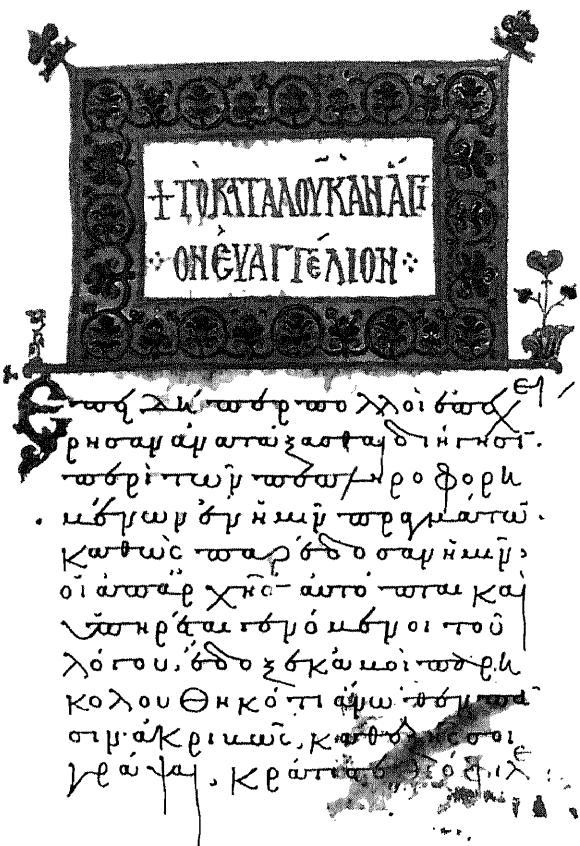 + ΤΟ ΚΑΤΑ ΛΟΥΚΑΝ ΑΓΙ
ΟΝ ΕΥΑΓΓΕΛΙΟΝ
Ἐπειδήπερ πολλοὶ ἐπεχεί
ρησαν ἀνατάξασθαι διήγησιν
περὶ τῶν πεπληροφορη
μένων ἐν ἡμῖν πραγμάτων.
καθὼς παρέδοσαν ἡμῖν,
οἱ ἀπαρχῆς αὐτόπται καὶ
ὑπηρέται γενόμενοι τοῦ
λόγου, ἔδοξε κἀμοὶ παρη
κολουθηκότι ἄνωθεν πᾶ
σιν ἀκριβῶς, καθεξῆς σοι
γράψαι, κράτιστε Θεόφιλε